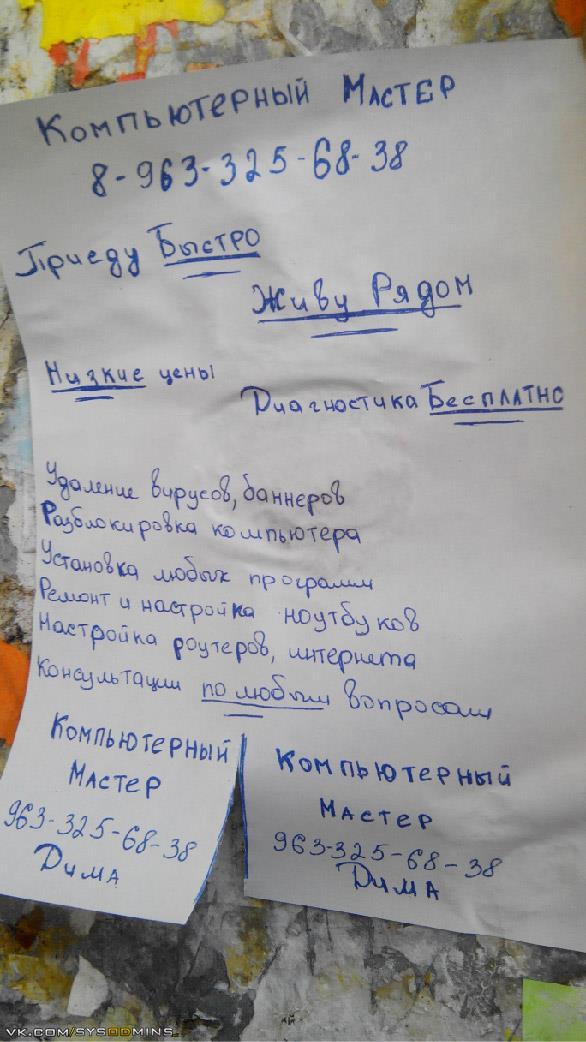 Компьютерный Мастер
8-963-325-68-38
Приеду Быстро
Живу Рядом
Низкие цены
Диагностика Бесплатно
Удаление вирусов, баннеров
Разблокировка компьютера
Установка любых программ
Ремонт и настройка ноутбуков
Настройка роутеров, интернета
Консультации по любым вопросам
Компьютерный
Мастер
963-325-68-38
Дима
Компьютерный
Мастер
963-325-68-38
Дима
VK.COM/SYSODMINS_